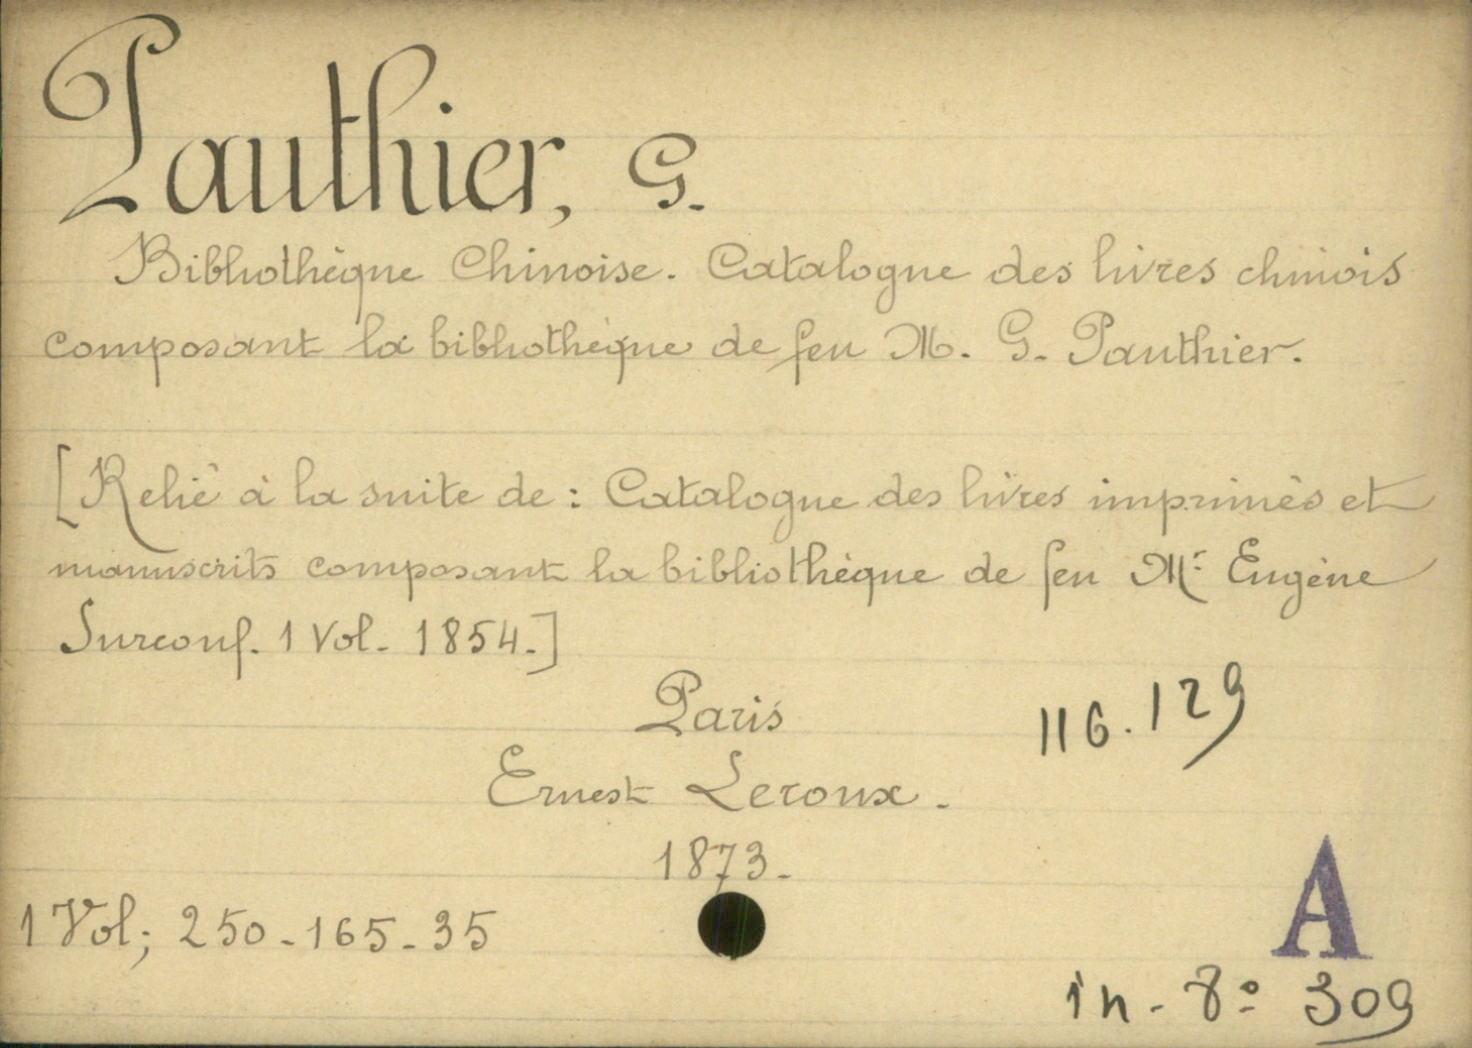 Pauthier, G.
Bibliothèque Chinoise. Catalogue des livres chinois
composant la bibliothèque de feu M. G. Pauthier.
[Relié à la suite de : Catalogue des livres imprimés et
manuscrits composant la bibliothèque de feu Mr Eugène
Surcouf. 1 Vol. 1854.]
Paris
116.129
Ernest Leroux.
1873.
1 Vol; 250-165-35
A
in-8º 309